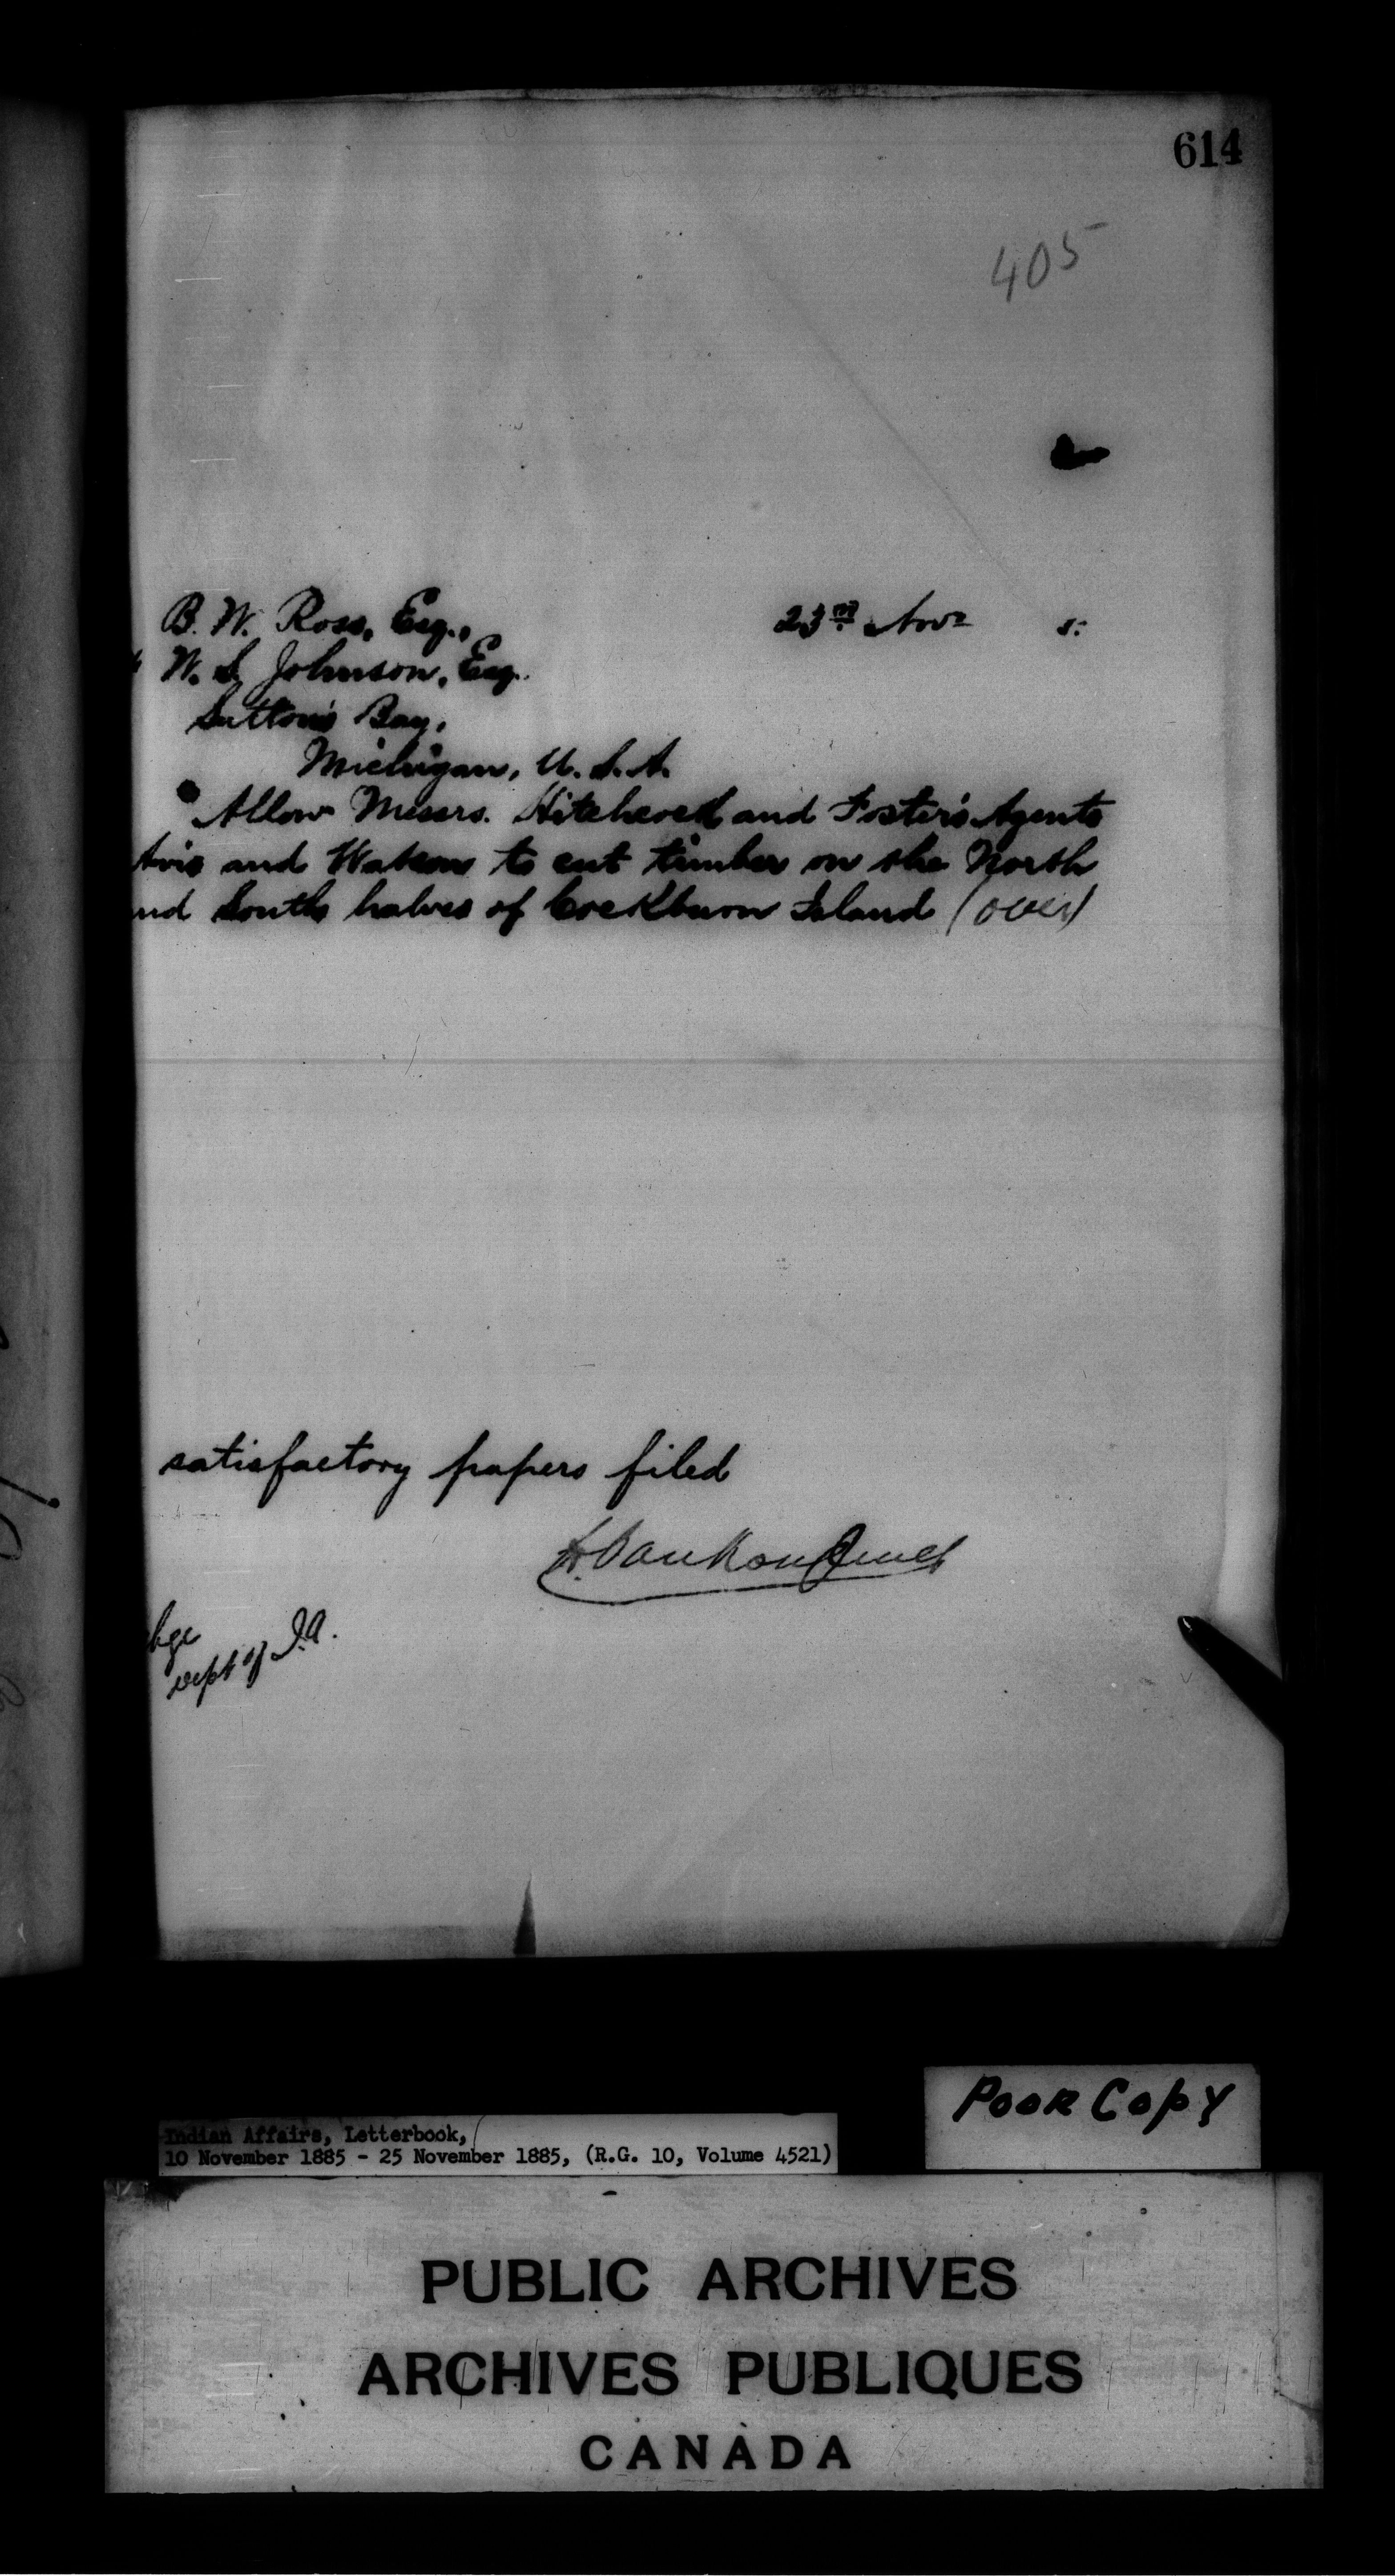 614
405
B. W. Ross, Esq.,
23rd Novr 5.
W. S. Johnson, Esq.
Sutton's Bay,
Michigan, U. S. A.
Allow Messrs. Hitchcock and Foster's Agents
and Watson to cut timber on the North
nd South halves of Cockburn Island (over)
satisfactory papers filed
L. Vankoughnet
hge
Dept of I.A.
Poor Copy
Indian Affairs, Letterbook,
10 November 1885 - 25 November 1885, (R.G. 10, Volume 4521)
PUBLIC ARCHIVES
ARCHIVES PUBLIQUES
CANADA